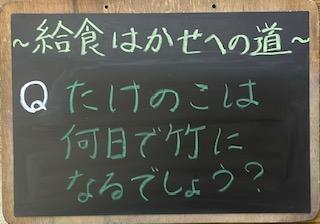 ~給食はかせへの道~
Q たけのこは
何日で竹に
なるでしょう?